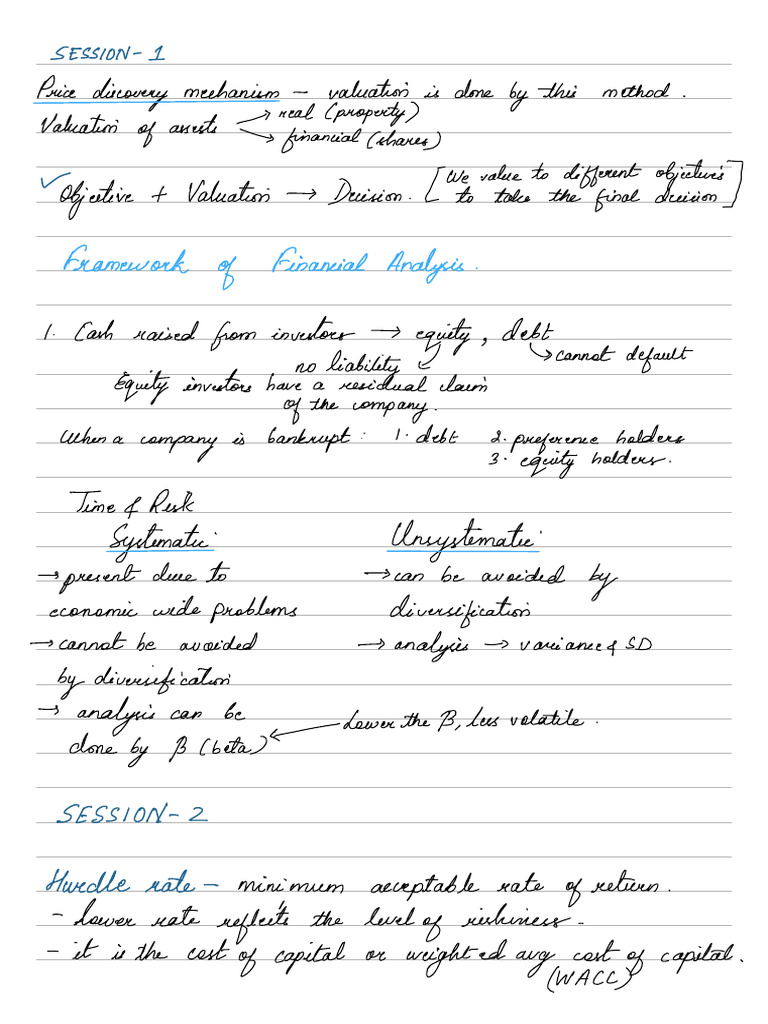 SESSION - 1
Price discovery mechanism - valuation is done by this method.
Valuation of assets → real (property)
→ financial (shares)
✓ Objective + Valuation → Decision. [We value to different objectives
to take the final decision]
Framework of Financial Analysis.
1. Cash raised from investors → equity, debt
no liability ← → cannot default
Equity investors have a residual claim
of the company.
When a company is bankrupt: 1. debt 2. preference holders
3. equity holders.
Time & Risk
Systematic: Unsystematic:
→ present due to → can be avoided by
economic wide problems diversification
→ cannot be avoided → analysis → variance & SD
by diversification
→ analysis can be ← Lower the β, less volatile.
done by β (beta)
SESSION - 2
Hurdle rate - minimum acceptable rate of return.
- Lower rate reflects the level of riskiness.
- it is the cost of capital or weighted avg cost of capital.
(WACC)